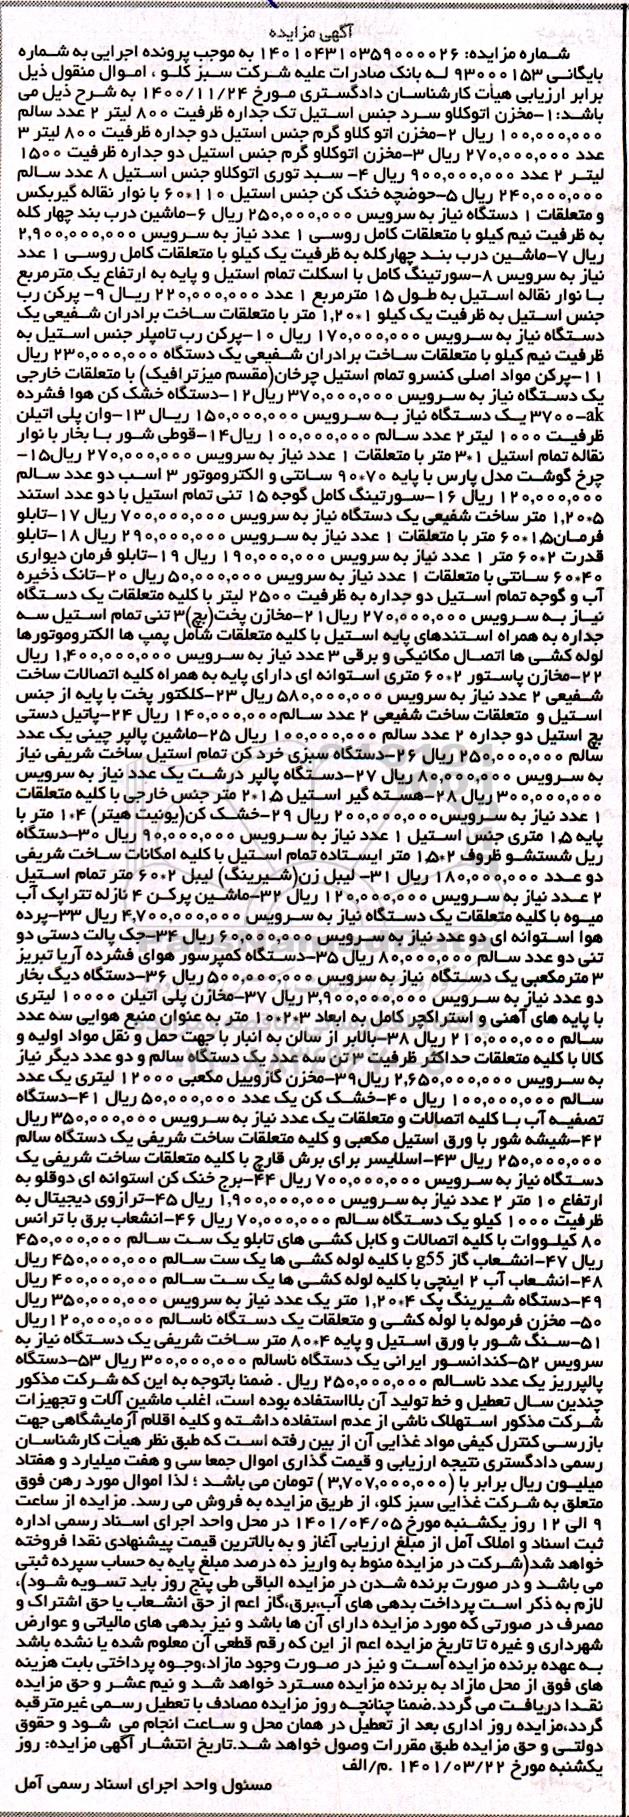 آگهی مزایده
شـماره مزایده: ۱۴۰۱۰۴۳۱۰۳۵۹۰۰۰۰۲۶ به موجب پرونده اجرایی به شـماره
بایگانـی ۹۳۰۰۰۱۵۳ لـه بانک صادرات علیه شرکت سبز کلـو ، امـوال منقول ذیل
برابر ارزیابی هیأت کارشناسـان دادگستری مـورخ ۱۴۰۰/۱۱/۲۴ به شرح ذیل می
باشـد:۱-مخزن اتوکلاو سـرد جنس استیل تک جداره ظرفیت ۸۰۰ لیتر ۲ عدد سالم
۱۰۰,۰۰۰,۰۰۰ ریال ۲-مخزن اتو کلاو گرم جنس استیل دو جداره ظرفیت ۸۰۰ لیتر ۳
عدد ۲۷۰,۰۰۰,۰۰۰ ریال ۳-مخزن اتوکلاو گرم جنس استیل دو جداره ظرفیت ۱۵۰۰
لیتـر ۲ عدد ۹۰۰,۰۰۰,۰۰۰ ریال ۴- سـبد توری اتوکلاو جنس اسـتیل ۸ عدد سـالم
۲۴۰,۰۰۰,۰۰۰ ریال ۵-حوضچه خنک کن جنس استیل ۱۱۰*۶۰ با نوار نقاله گیربکس
و متعلقات ۱ دستگاه نیاز به سرویس ۲۵۰,۰۰۰,۰۰۰ ریال ۶-ماشین درب بند چهار کله
به ظرفیت نیم کیلو با متعلقات کامل روسـی ۱ عدد نیاز به سـرویس ۲,۹۰۰,۰۰۰,۰۰۰
ریال ۷-ماشـین درب بند چهارکله به ظرفیت یک کیلو با متعلقات کامل روسـی ۱ عدد
نیاز به سرویس ۸-سورتینگ کامل با اسکلت تمام استیل و پایه به ارتفاع یک مترمربع
بـا نوار نقاله استیل به طـول ۱۵ مترمربع ۱ عدد ۲۲۰,۰۰۰,۰۰۰ ریـال ۹- پرکن رب
جنس استیل به ظرفیت یک کیلو ۱*۱,۲۰ متر با متعلقات ساخت برادران شفیعی یک
دسـتگاه نیاز به سـرویس ۱۷۰,۰۰۰,۰۰۰ ریال ۱۰-پرکن رب تامپلر جنس استیل به
ظرفیت نیم کیلو با متعلقات ساخت برادران شـفیعی یک دستگاه ۲۳۰,۰۰۰,۰۰۰ ریال
۱۱-پرکن مواد اصلی کنسرو تمام استیل چرخان(مقسم میزترافیک) با متعلقات خارجی
یک دستگاه نیاز به سرویس ۳۷۰,۰۰۰,۰۰۰ ریال۱۲-دستگاه خشک کن هوا فشرده
ak-۳۷۰۰ یـک دستگاه نیاز بـه سـرویس ۱۵۰,۰۰۰,۰۰۰ ریـال ۱۳-وان پلی اتیلن
ظرفیـت ۱۰۰۰ لیتر۲ عدد سـالم ۱۰۰,۰۰۰,۰۰۰ ریال۱۴-قوطی شـور بـا بخار با نوار
نقاله تمام استیل ۱*۳ متر با متعلقات ۱ عدد نیاز به سرویس ۲۷۰,۰۰۰,۰۰۰ ریال۱۵-
چرخ گوشت مدل پارس با پایه ۷۰*۹۰ سـانتی و الکتروموتور ۳ اسـب دو عدد سـالم
۱۲۰,۰۰۰,۰۰۰ ریال ۱۶-سـورتینگ کامل گوجه ۱۵ تنی تمام استیل با دو عدد استند
۵*۱,۲۰ متر ساخت شفیعی یک دستگاه نیاز به سرویس ۷۰۰,۰۰۰,۰۰۰ ریال ۱۷-تابلو
فرمـان۱,۵*۶۰ متر با متعلقات ۱ عدد نیاز به سـرویس ۲۹۰,۰۰۰,۰۰۰ ریال ۱۸-تابلو
قدرت ۲*۶۰ متر ۱ عدد نیاز به سـرویس ۱۹۰,۰۰۰,۰۰۰ ریال ۱۹-تابلو فرمان دیواری
۴۰*۶۰ سـانتی با متعلقات ۱ عدد نیاز به سرویس ۵۰,۰۰۰,۰۰۰ ریال ۲۰-تانک ذخیره
آب و گوجه تمام استیل دو جداره به ظرفیت ۲۵۰۰ لیتر با کلیه متعلقات یک دسـتگاه
نیـاز بـه سـرویس ۲۷۰,۰۰۰,۰۰۰ ریال۲۱-مخازن پخت(بچ)۳ تنی تمام اسـتیل سـه
جداره به همراه اسـتندهای پایه استیل با کلیه متعلقات شامل پمپ ها الکتروموتورها
لوله کشـی ها اتصـال مکانیکی و برقی ۳ عدد نیاز به سـرویس ۱,۴۰۰,۰۰۰,۰۰۰ ریال
۲۲-مخازن پاستور ۲*۶۰ متری استوانه ای دارای پایه به همراه کلیه اتصالات ساخت
شـفیعی ۲ عدد نیاز به سـرویس ۵۸۰,۰۰۰,۰۰۰ ریال ۲۳-کلکتور پخت با پایه از جنس
اسـتیل و متعلقات ساخت شفیعی ۲ عدد سـالم۱۴۰,۰۰۰,۰۰۰ ریال ۲۴-پاتیل دستی
بچ استیل دو جداره ۲ عدد سالم ۱۰۰,۰۰۰,۰۰۰ ریال ۲۵-ماشین پالپر چینی یک عدد
سالم ۲۵۰,۰۰۰,۰۰۰ ریال ۲۶-دستگاه سبزی خرد کن تمام استیل ساخت شریفی نیاز
به سـرویس ۸۰,۰۰۰,۰۰۰ ریال ۲۷-دسـتگاه پالپر درشـت یک عدد نیاز به سـرویس
۳۰۰,۰۰۰,۰۰۰ ریال ۲۸-هسـته گیر اسـتیل ۱,۵*۲ متر جنس خارجی با کلیه متعلقات
۱ عدد نیاز به سـرویس۲۰۰,۰۰۰,۰۰۰ ریال ۲۹-خشـک کن(یونیت هیتر) ۴*۱ متر با
پایه ۱,۵ متری جنس استیل ۱ عدد نیاز به سرویس ۹۰,۰۰۰,۰۰۰ ریال ۳۰-دستگاه
ریل شستشـو ظروف ۲*۱,۵ متر ایسـتاده تمام استیل با کلیه امکانات ساخت شریفی
دو عـدد ۱۸۰,۰۰۰,۰۰۰ ریال ۳۱- لیبل زن(شـیرینگ) لیبل ۲*۶۰ متر تمام استیل
۲ عـدد نیاز به سـرویس ۱۲۰,۰۰۰,۰۰۰ ریال ۳۲-ماشین پرکـن ۴ نازله تتراپک آب
میـوه با کلیه متعلقات یک دستگاه نیاز به سـرویس ۴,۷۰۰,۰۰۰,۰۰۰ ریال ۳۳-پرده
هوا اسـتوانه ای دو عدد نیاز به سـرویس ۶۰,۰۰۰,۰۰۰ ریال ۳۴-جک پالت دستی دو
تنی دو عدد سـالم ۸۰,۰۰۰,۰۰۰ ریال ۳۵-دستگاه کمپرسور هوای فشرده آریا تبریز
۳ مترمکعبی یک دسـتگاه نیاز به سرویس ۵۰۰,۰۰۰,۰۰۰ ریال ۳۶-دستگاه دیگ بخار
دو عدد نیاز به سـرویس ۳,۹۰۰,۰۰۰,۰۰۰ ریال ۳۷-مخازن پلی اتیلن ۱۰۰۰۰ لیتری
با پایه های آهنی و استراکچر کامل به ابعاد ۳*۲*۱۰ متر به عنوان منبع هوایی سه عدد
سـالم ۲۱۰,۰۰۰,۰۰۰ ریال ۳۸-بالابر از سالن به انبار با جهت حمل و نقل مواد اولیه و
کالا با کلیه متعلقات حداکثر ظرفیت ۳ تن سه عدد یک دستگاه سالم و دو عدد دیگر نیاز
به سـرویس ۲,۶۵۰,۰۰۰,۰۰۰ ریال۳۹-مخزن گازوییل مکعبی ۱۲۰۰۰ لیتری یک عدد
سـالم ۱۰۰,۰۰۰,۰۰۰ ریال ۴۰-خشـک کن یک عدد ۵۰,۰۰۰,۰۰۰ ریال ۴۱-دستگاه
تصفیـه آب بـا کلیه اتصالات و متعلقات یک عدد نیاز به سـرویس ۳۵۰,۰۰۰,۰۰۰ ریال
۴۲-شیشه شور با ورق استیل مکعبی و کلیه متعلقات ساخت شریفی یک دستگاه سالم
۲۵۰,۰۰۰,۰۰۰ ریال ۴۳-اسلایسر برای برش قارچ با کلیه متعلقات ساخت شریفی یک
دستگاه نیاز به سرویس ۷۰۰,۰۰۰,۰۰۰ ریال ۴۴-برج خنک کن استوانه ای دوقلو به
ارتفاع ۱۰ متر ۲ عدد نیاز به سـرویس ۱,۹۰۰,۰۰۰,۰۰۰ ریال ۴۵-ترازوی دیجیتال به
ظرفیت ۱۰۰۰ کیلو یک دسـتگاه سالم ۷۰,۰۰۰,۰۰۰ ریال ۴۶-انشعاب برق با ترانس
۸۰ کیلـووات با کلیه اتصالات و کابل کشـی های تابلو یک سـت سـالم ۴۵۰,۰۰۰,۰۰۰
ریال ۴۷-انشـعاب گاز g55 با کلیه لوله کشی ها یک ست سـالم ۴۵۰,۰۰۰,۰۰۰ ریال
۴۸-انشـعاب آب ۲ اینچی با کلیه لوله کشـی ها یک سـت سـالم ۴۰۰,۰۰۰,۰۰۰ ریال
۴۹-دستگاه شـیرینگ پک ۴*۱,۲۰ متر یک عدد نیاز به سرویس ۳۵۰,۰۰۰,۰۰۰ ریال
۵۰- مخزن فرموله با لوله کشـی و متعلقات یک دسـتگاه ناسـالم ۱۲۰,۰۰۰,۰۰۰ریال
۵۱-سـنگ شور با ورق استیل و پایه ۴*۸۰ متر ساخت شریفی یک دستگاه نیاز به
سرویس ۵۲-کندانسور ایرانی یک دستگاه ناسالم ۳۰۰,۰۰۰,۰۰۰ ریال ۵۳-دستگاه
پالپرریز یک عدد ناسـالم ۲۵۰,۰۰۰,۰۰۰ ریال . ضمنا باتوجه به این که شرکت مذکور
چندین سـال تعطیل و خط تولید آن بلااستفاده بوده است، اغلب ماشین آلات و تجهیزات
شـرکت مذکور اسـتهلاک ناشی از عدم استفاده داشـته و کلیه اقلام آزمایشگاهی جهت
بازرسـی کنترل کیفی مواد غذایی آن از بین رفته اسـت که طبق نظر هیأت کارشناسـان
رسمی دادگستری نتیجه ارزیابی و قیمت گذاری اموال جمعا سی و هفت میلیارد و هفتاد
میلیون ریال برابر با (۳,۷۰۷,۰۰۰,۰۰۰ ) تومان می باشـد ؛ لذا اموال مورد رهن فوق
متعلق به شرکت غذایی سبز کلو، از طریق مزایده به فروش می رسد. مزایده از ساعت
۹ الی ۱۲ روز یکشـنبه مورخ ۱۴۰۱/۰۴/۰۵ در محل واحد اجرای اسـناد رسمی اداره
ثبت اسناد و املاک آمل از مبلغ ارزیابی آغاز و به بالاترین قیمت پیشنهادی نقدا فروخته
خواهد شـد(شرکت در مزایده منوط به واریز ده درصد مبلغ پایه به حساب سپرده ثبتی
می باشـد و در صورت برنده شـدن در مزایده الباقی طی پنج روز باید تسویه شود)،
لازم به ذکر است پرداخت بدهی های آب،برق،گاز اعم از حق انشـعاب یا حق اشتراک و
مصرف در صورتی که مورد مزایده دارای آن ها باشد و نیز بدهی های مالیاتی و عوارض
شهرداری و غیره تا تاریخ مزایده اعم از این که رقم قطعی آن معلوم شده یا نشده باشد
بـه عهده برنده مزایده است و نیز در صـورت وجود مازاد،وجـوه پرداختی بابت هزینه
های فوق از محل مازاد به برنده مزایده مسـترد خواهد شـد و نیم عشـر و حق مزایده
نقـدا دریافت می گردد.ضمنا چنانچـه روز مزایده مصادف با تعطیل رسـمی غیرمترقبه
گردد،مزایده روز اداری بعد از تعطیل در همان محل و ساعت انجام می شود و حقوق
دولتـی و حق مزایده طبق مقررات وصول خواهد شـد.تاریخ انتشـار آگهی مزایده: روز
یکشنبه مورخ ۱۴۰۱/۰۳/۲۲ .م/الف
مسئول واحد اجرای اسناد رسمی آمل